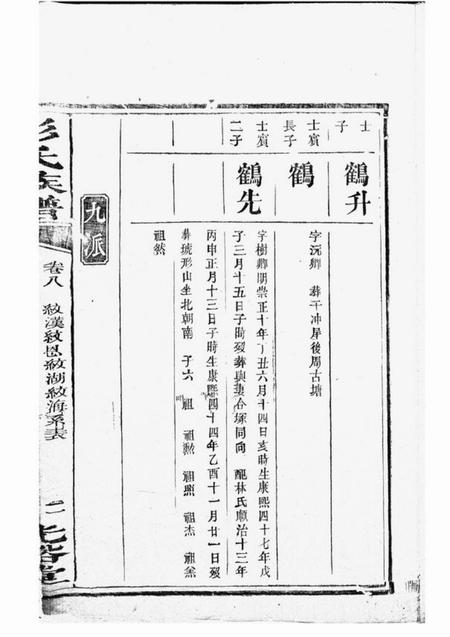 士
子
鶴升
字沅卿 葬干冲屋後周古塘
士賓
長子
鶴
士賓
二子
鶴先
字樹卿明崇正十年丁丑六月十四日亥時生康熙四十七年戊
子三月十五日子時歿葬與妻合塚同向 配林氏順治十三年
丙申正月十三日子時生康熙四十四年乙酉十一月廿一日歿
葬琥形山坐北朝南 子六 祖 祖勲 祖熙 祖杰 祖烝
祖然
九派
彭氏族譜
卷八
紋漢紋恩紋湖紋海系表